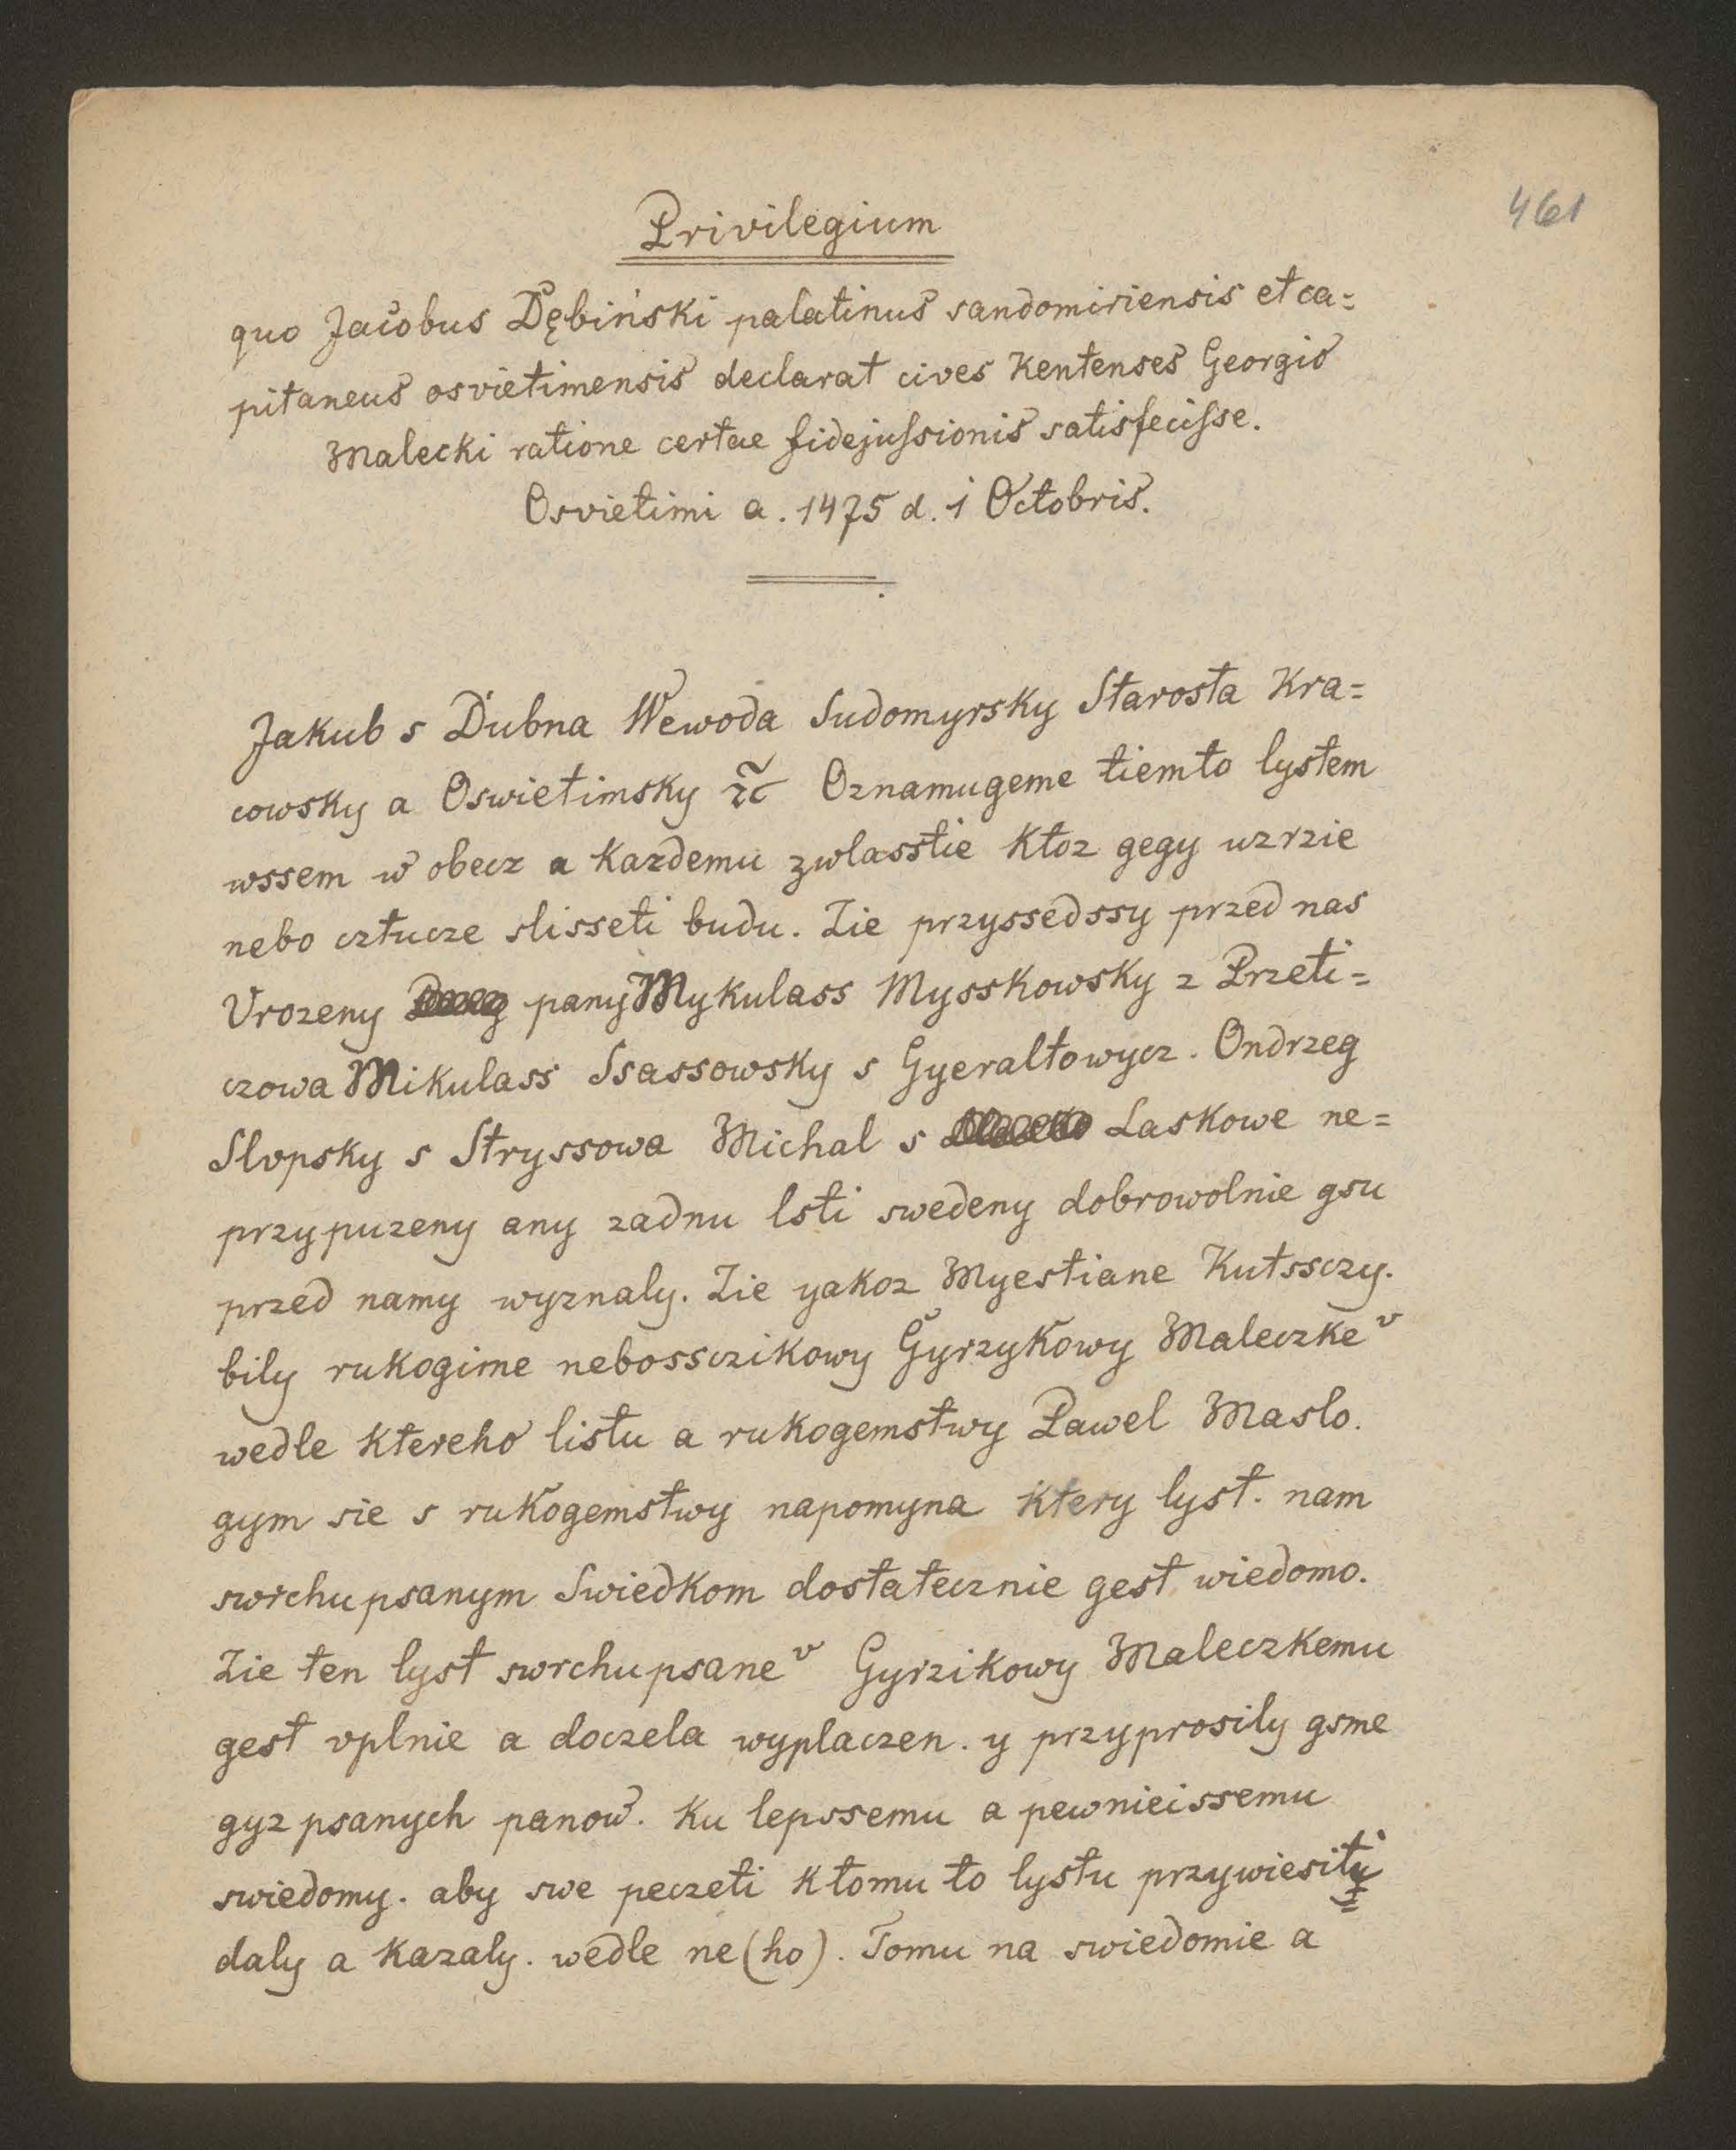 461
Privilegium
quo Jacobus Dębiński palatinus sandomiriensis et ca=
pitaneus osvietimensis declarat cives Kentenses Georgio
Malecki ratione certae fidejussionis satisfecisse.
Osvietimi a. 1475 d. 1 Octobris.
Jakub s Dubna Wewoda Sudomyrsky Starosta Kra=
cowsky a Oswietimsky Oznamugeme tiemto lystem
wssem w obecz a Kazdemu zwlasstie Ktoz gegy uzrzie
nebo cztucze slisseti budu. Zie przyssedssy przed nas
Vrozeny pany Mykulass Mysskowsky z Przeti=
czowa Mikulass Ssassowsky s Gyeraltowycz. Ondrzeg
Slopsky s Stryssowa Michal s Laskowe ne=
przypuzeny any zadnu lsti swedeny dobrowolnie gsu
przed namy wyznaly. Zie yakoz Myestiane Kutssczy.
bily rukogime nebossczikowy Gyrzykowy Maleczke v
wedle Ktereho listu a rukogemstwy Pawel Maslo.
gym sie s rukogemstwy napomyna Ktery lyst. nam
swrchupsanym Swiedkom dostatecznie gest wiedomo.
Zie ten lyst swrchupsane v Gyrzikowy Maleczkemu
gest vplnie a doczela wyplaczen. y przyprosily gsme
gyz psanych panow. Ku lepssemu a pewnieissemu
swiedomy. aby swe peczeti Ktomu to lystu przywiesity
daly a Kazaly. wedle ne(ho). Tomu na swiedomie a